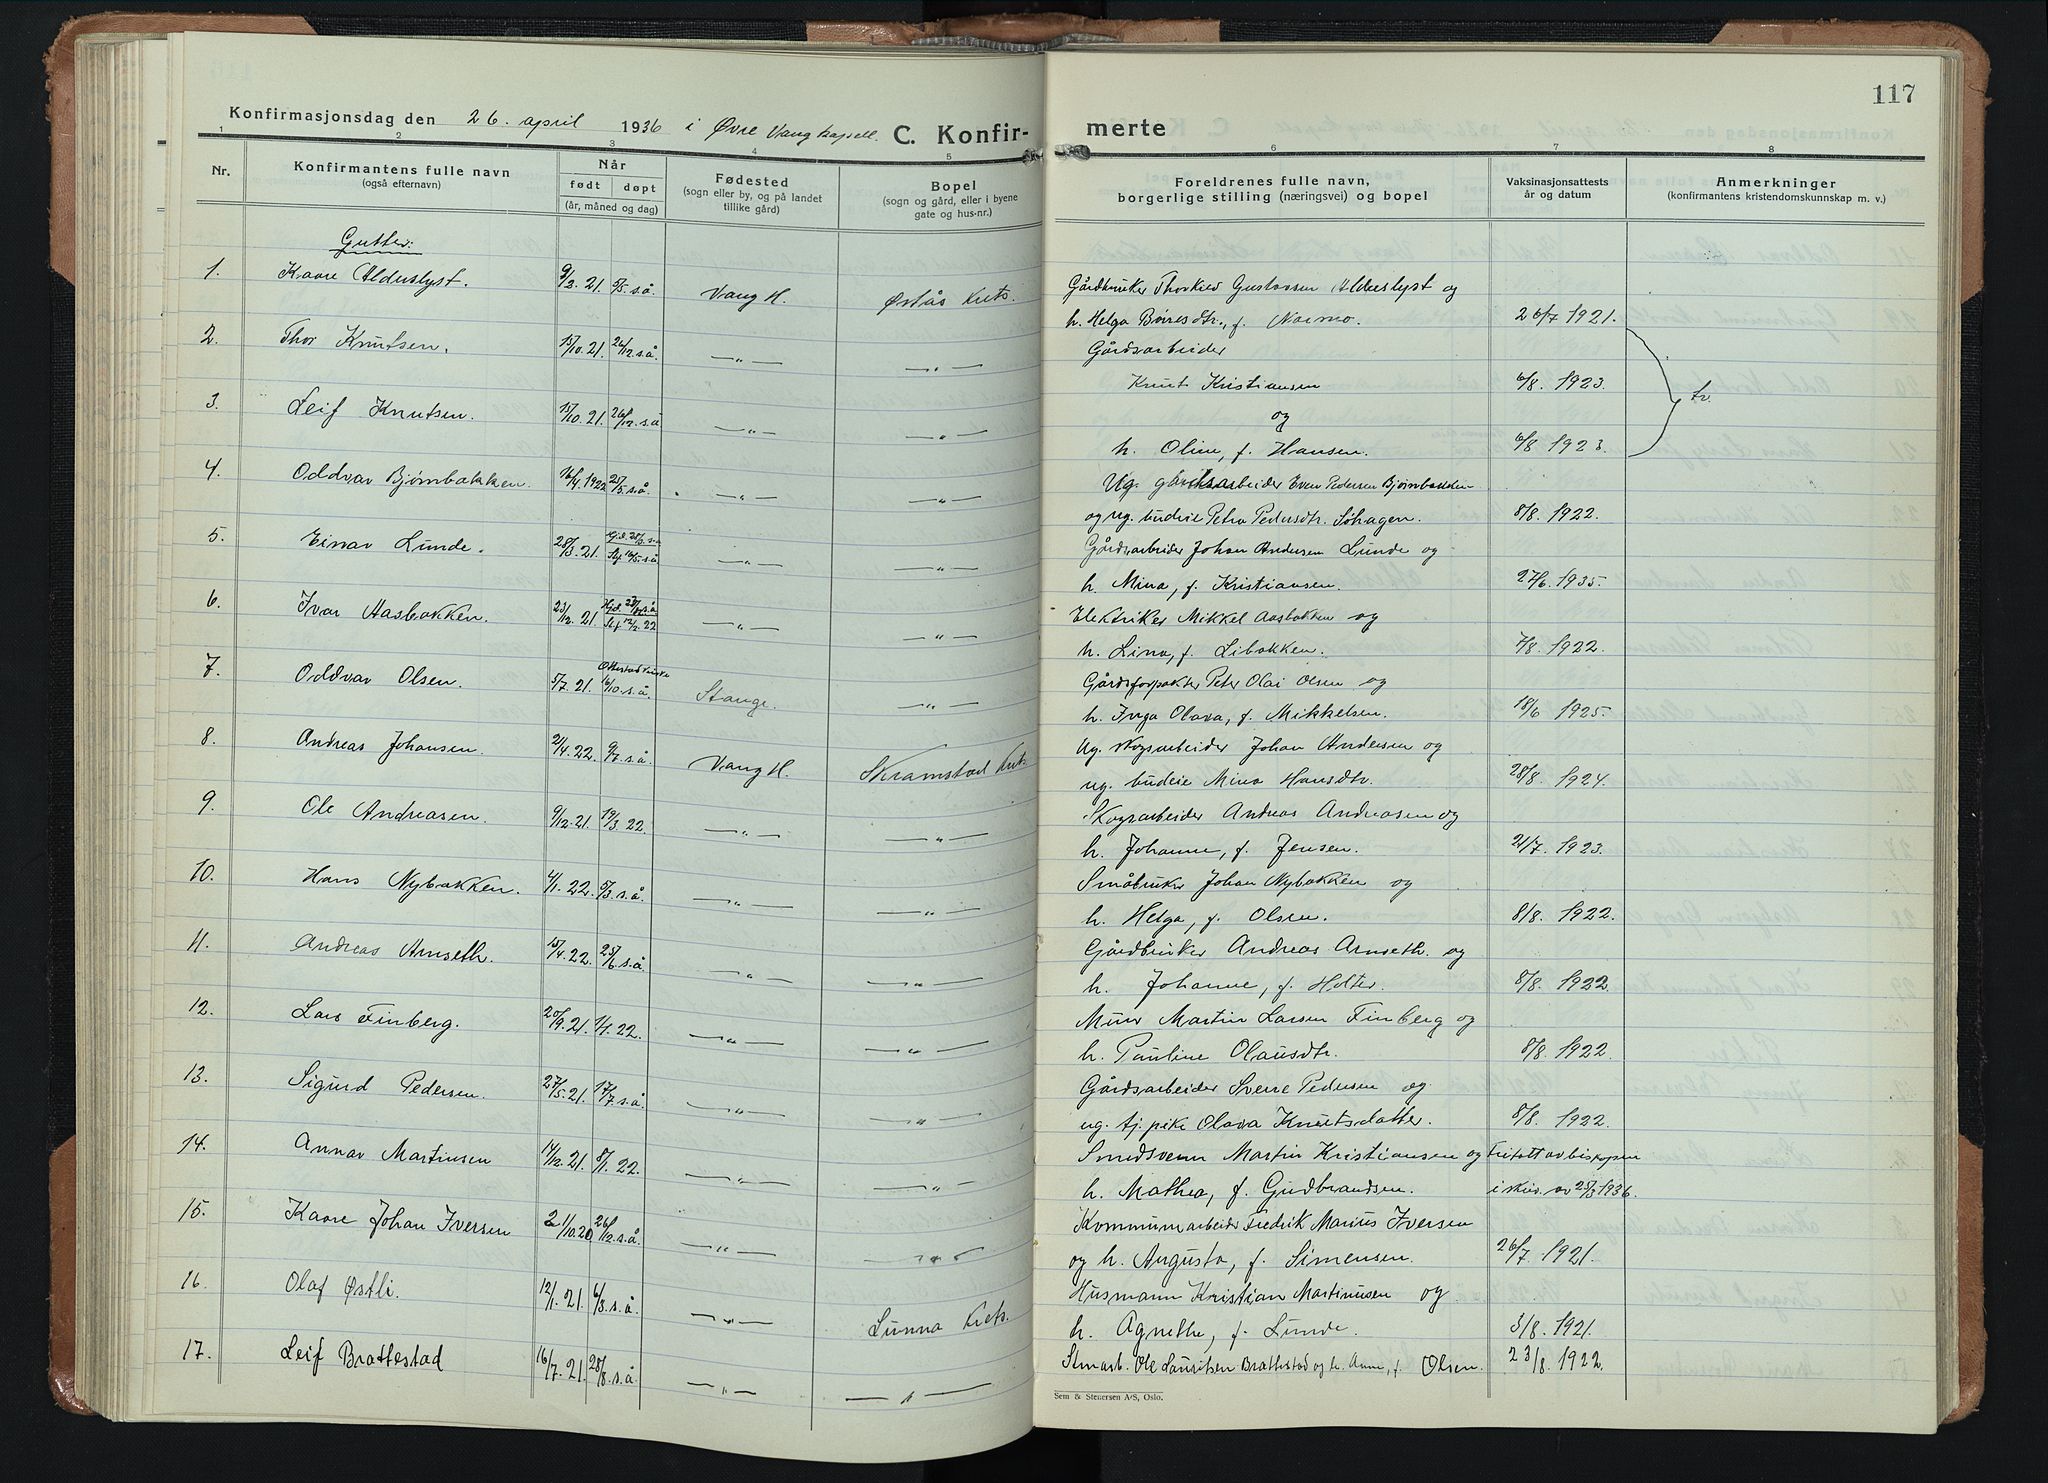 117
Konfirmasjonsdag den 26. april 1936 i Øvre Vang kapell. C. Konfir-merte
1 2 3 4 5 6 7 8
Nr.
Konfirmantens fulle navn
(også efternavn)
Når
født døpt
(år, måned og dag)
Fødested
(sogn eller by, og på landet
tillike gård)
Bopel
(sogn og gård, eller i byene
gate og hus-nr.)
Foreldrenes fulle navn,
borgerlige stilling (næringsvei) og bopel
Vaksinasjonsattests
år og datum
Anmerkninger
(konfirmantens kristendomskunnskap m. v.)
Gutter:
1. Kaare Alderslyst. 9/3. 21. 5/5. s.å. Vang H. Østås krets. Gårdbruker Thorkild Gustavsen Alderslyst og
h. Helga Børresdtr., f. Normo. 26/7 1921.
2. Thor Knutsen. 15/10. 21. 26/12. s.å. —„— —„— Gårdsarbeider
Knut Kristiansen 6/8. 1923.
3. Leif Knutsen. 15/10. 21. 26/12. s.å —„— —„— og
h. Oline, f. Hansen. 6/8 1923. tv.
4. Oddvar Bjørnbakken. 16/4. 1922 25/5. s.å. —„— —„— Ug. gårdsarbeider Even Pedersen Bjørnbakken
og ug. budeie Petra Pedersdtr. Søhagen. 8/8. 1922.
5. Einar Lunde. 28/3. 21. Hjd. 28/3 s.å Stf 16/5. s.å —„— —„— Gårdsarbeider Johan Andersen Lunde og
h. Mina, f. Kristiansen. 27/6. 1935.
6. Ivar Aasbakken. 23/12. 21. Stf 12/2. 22 —„— —„— Elektriker Mikkel Aasbakken og
h. Lina, f. Libakken. 7/8. 1922.
7. Oddvar Olsen. 5/7. 21. 16/10. s.å. Stange. —„— Gårdsforpakter Peter Olai Olsen og
h. Inga Olava, f. Mikkelsen. 18/6 1925.
8. Andreas Johansen. 2/4. 22. 9/7. s.å. Vang H. Skramstad krets Ug. skogsarbeider Johan Andersen og
ug. budeie Mina Hansdtr. 28/8. 1924.
9. Ole Andreasen. 9/12. 21. 19/3. 22. —„— —„— Skogsarbeider Andreas Andreasen og
h. Johanne, f. Jensen. 21/7. 1923.
10. Hans Nybakken. 4/1. 22. 5/3. s.å. —„— —„— Småbruker Johan Nybakken og
h. Helga, f. Olsen. 8/8. 1922.
11. Andreas Arnseth. 15/4. 22. 25/6. s.å. —„— —„— Gårdbruker Andreas Arnseth. og
h. Johanne, f. Holter. 8/8. 1922
12. Lars Finberg. 20/9. 21. 1/1. 22. —„— —„— Murer Martin Larsen Finberg og
h. Pauline Olausdtr. 8/8. 1922
13. Sigurd Pedersen. 27/5. 21. 17/7. s.å. —„— —„— Gårdsarbeider Sverre Pedersen og
ug. tj. pike Olava Knutsdatter. 8/8. 1922.
14. Annar Martinsen 14/12. 21. 8/1. 22. —„— —„— Smedsvenn Martin Kristiansen og Fritatt av biskopen
h. Mathea, f. Gudbrandsen. i skriv. av 25/3 1936.
15. Kaare Johan Iversen 21/10. 20 26/12. s.å. —„— —„— Kommunearbeider Fredrik Marius Iversen
og h. Augusta, f. Simensen. 26/7. 1921.
16. Olaf Østli. 12/1. 21. 6/3. s.å. —„— Lunna krets. Husmann Kristian Martinusen og
h. Agnethe, f. Lunde. 3/8. 1921.
17. Leif Brattestad 16/7. 21. 28/8. s.å —„— —„— Stmarb. Ole Lauritsen Brattestad og h. Anne, f. Olsen. 23/8. 1922.
Sem & Stenersen A/S, Oslo.